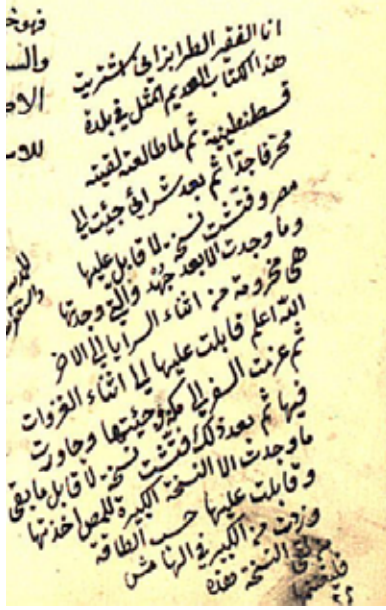 انا الفقير الطرابزاني اشتريت
هذا الكتاب العديم المثل في بلدة
قسطنطينية ثم لما طالعته لقيته
محرفا جدا ثم بعد شرائي جئت الى
مصر وفتشت نسخة لا قابل عليها
وما وجدت الا بعد جهد والتي وجدتها
هي مخرومة من اثناء السرايا الى الاخر
الله اعلم قابلت عليها الى اثناء الغزوات
ثم عزمت السفر الى مكة وجئتها وجاورت
فيها ثم بعد ذلك فتشت نسخة لا قابل ما بقي
ما وجدت الا النسخة الكبيرة للمص اخذتها
وقابلت عليها حسب الطاقة
وزدت من الكبير في الهامش
النسخة فهذه
فليغتنمها
فهو
والنسـ